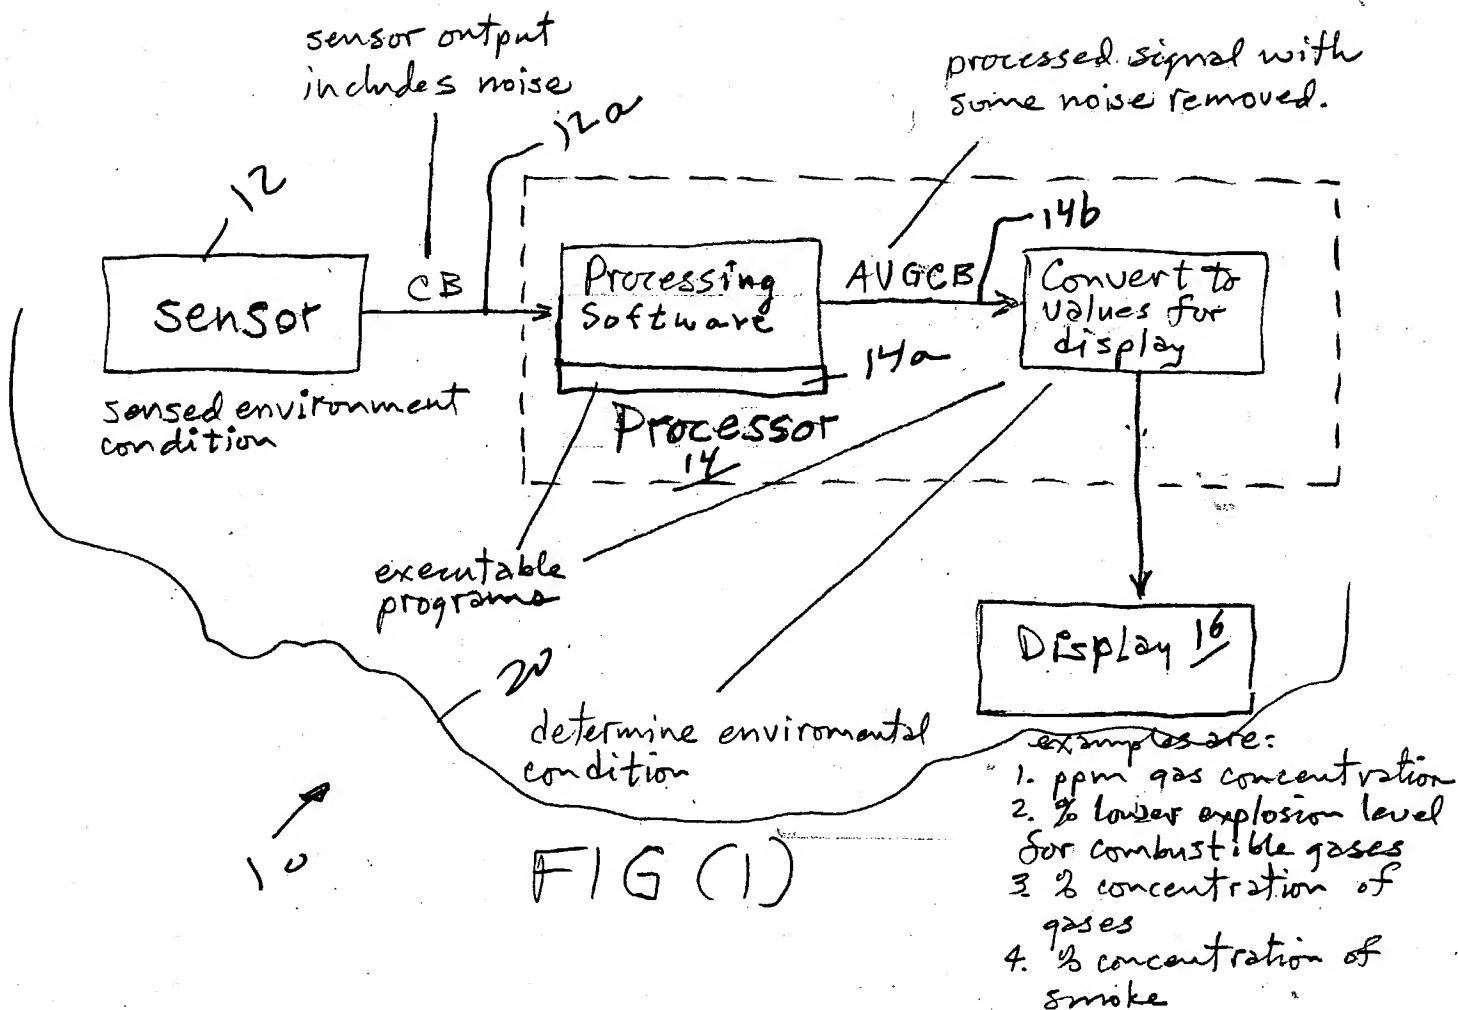 sensor output
includes noise
12a
processed signal with
some noise removed.
12
14b
sensor
CB
Processing
Software
AVGCB
Convert to
values for
display
14a
sensed environment
condition
Processor
14
executable
programs
Display 16
20
determine enviromental
condition
examples are:
1. ppm gas concentration
2. % lower explosion level
for combustible gases
3. % concentration of
gases
4. % concentration of
smoke
10
FIG (1)